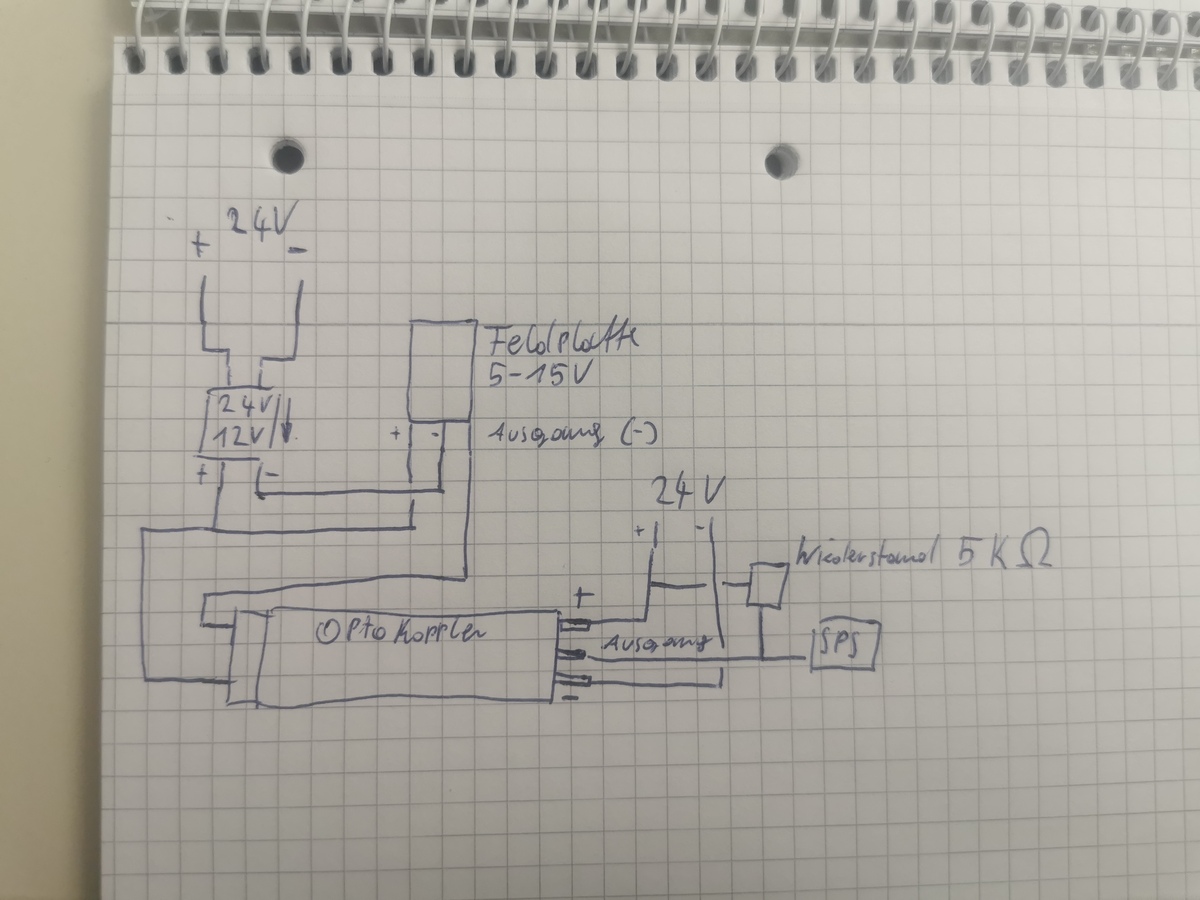 24V
+ -
Feldplatte
5-15V
24V
12V
+ -
+ -
Ausgang (-)
24V
+ -
Wiederstand 5KΩ
+
Optokoppler
Ausgang
SPS
-